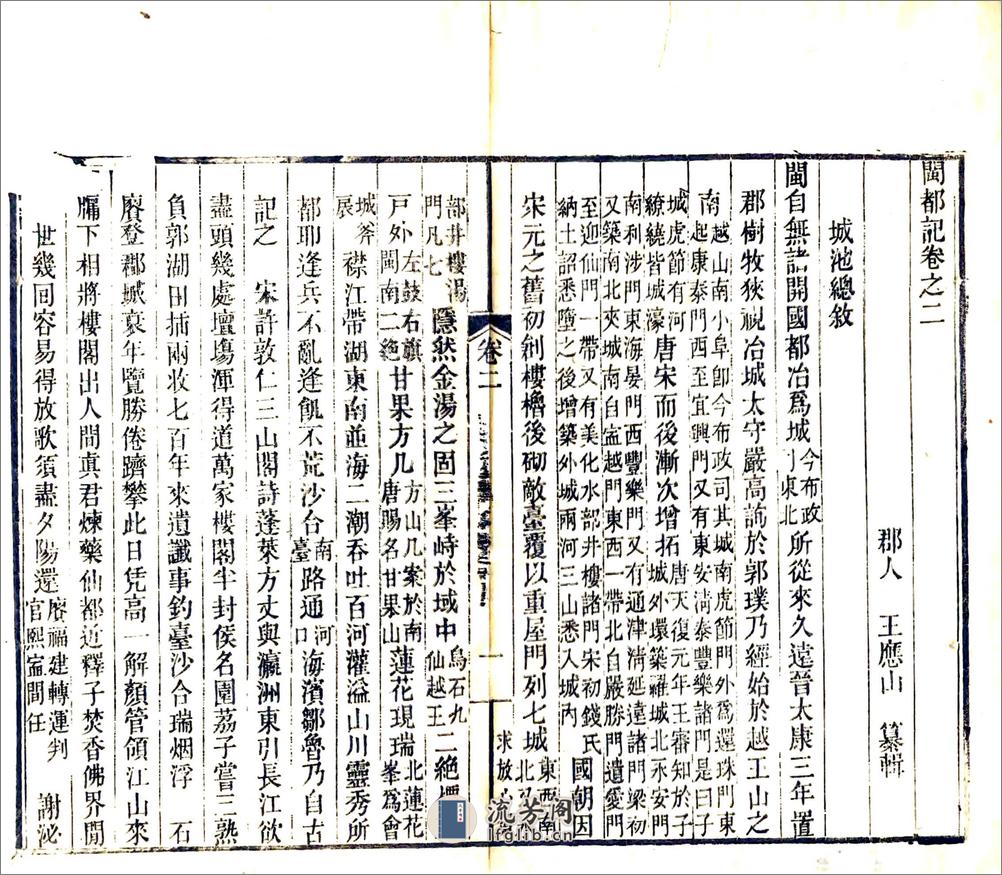 閩都記卷之二
郡人 王應山 纂輯
城池總敘
閩自無諸開國都冶爲城今布政司東北所從來久遠晉太康三年置
郡樹牧狹視冶城太守嚴高諮於郭璞乃經始於越王山之
南越山南小阜卽今布政司其城南虎節門外爲還珠門東起康泰門西至宜興門又有東安淸泰豐樂諸門是曰子
城虎節有河繚繞皆城濠唐宋而後漸次增拓唐天復元年王審知於子城外環築羅城北永安門
南利涉門東海晏門西豐樂門又有通津淸延遠諸門梁初又築南北夾城南自寍越門東西一帶北自嚴勝門遺愛門
至迎仙門一帶又有美化水部井樓諸門宋初錢氏納土詔悉墮之後增築外城兩河三山悉入城內 國朝因
宋元之舊初創樓櫓後砌敵臺覆以重屋門列七城東西南北
卷二
一
求放
部井樓湯門凡七隱然金湯之固三峯峙於域中烏石九仙越王二絕標
戶外左鼓右旗閩南二絕甘果方几方山几案於南唐賜名甘果山蓮花現瑞北蓮花峯爲會
城斧扆襟江帶湖東南並海二潮吞吐百河灌溢山川靈秀所
都耶逢兵不亂逢飢不荒沙合南臺路通河口海濱鄒魯乃自古
記之 宋許敦仁三山閣詩蓬萊方丈與瀛洲東引長江欲
盡頭幾處壇塲渾得道萬家樓閣半封侯名園荔子嘗三熟
負郭湖田插兩收七百年來遺讖事釣臺沙合瑞烟浮 石
賡登郡城衰年覽勝倦躋攀此日凭高一解顏管領江山來
牖下相將樓閣出人間眞君煉藥仙都近釋子焚香佛界閒
世幾回容易得放歌須盡夕陽還賡福建轉運判官熙寍間任 謝泌
流芳阁
lfglib.cn